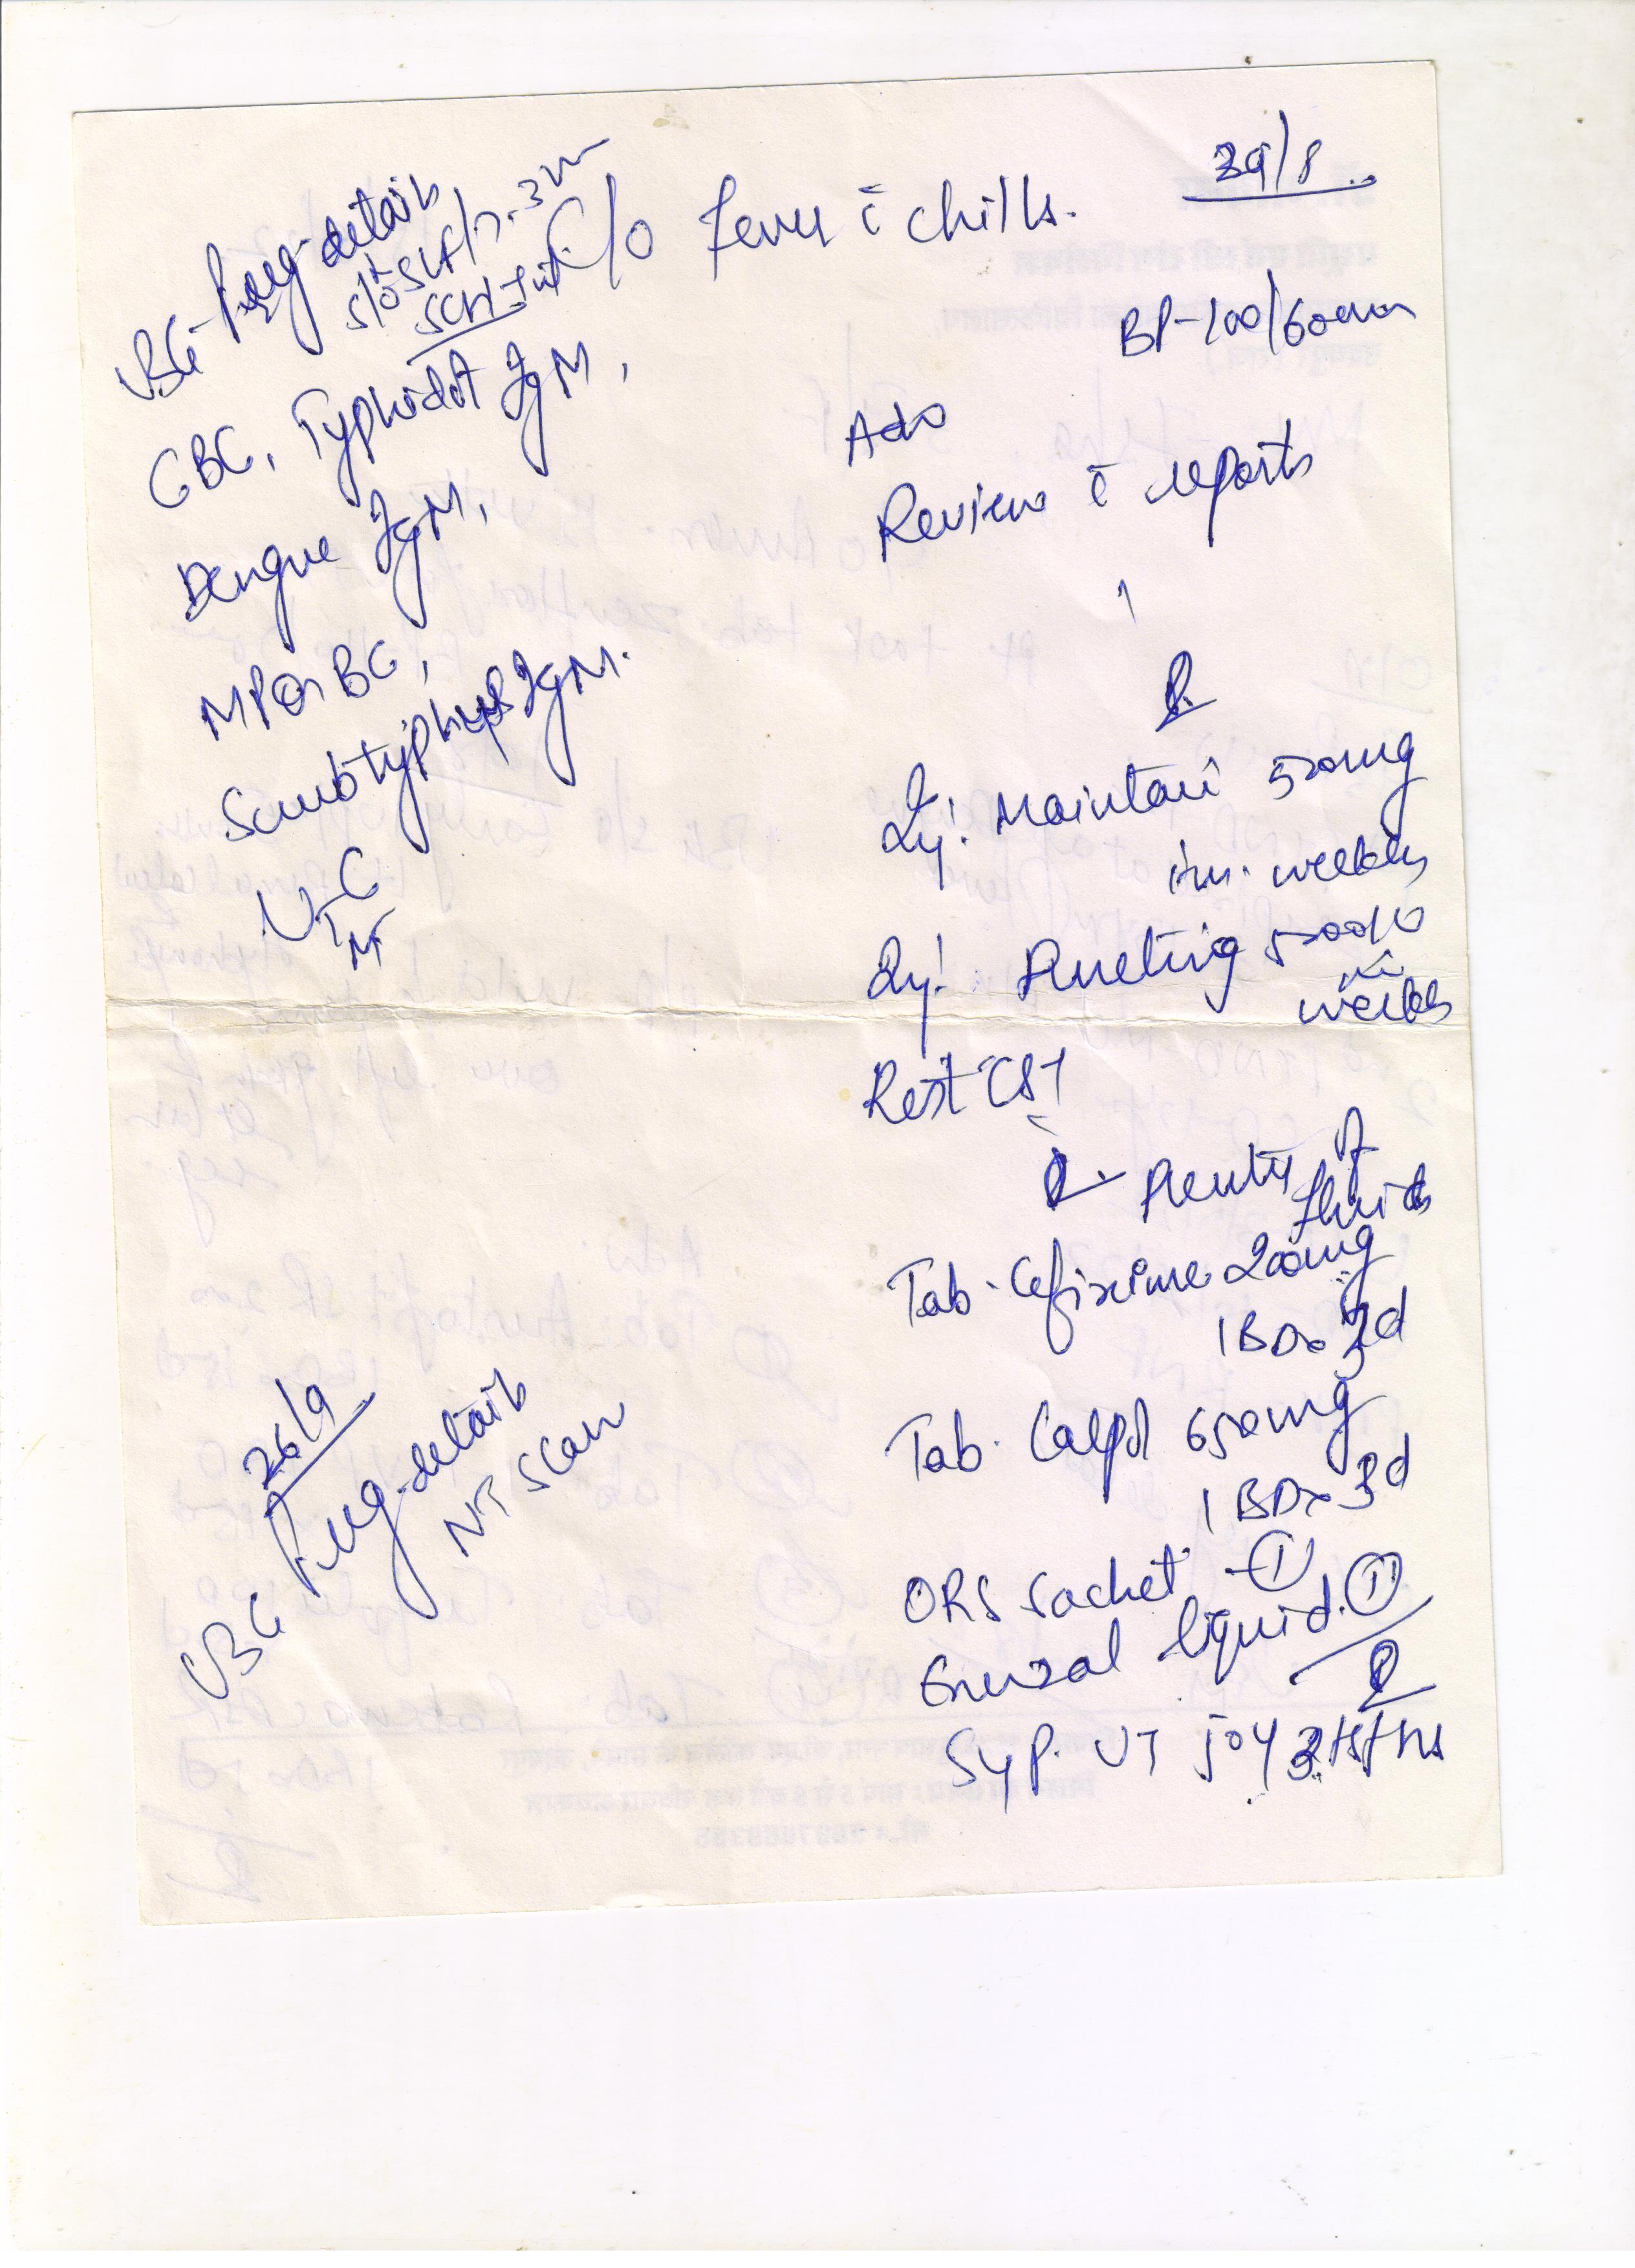 29/8
C/o Fever c̄ chills.
BP-100/60mm
USG- Preg-details
S/o SLF/
SCH +nt.
CBC, Typhidot IgM,
Dengue IgM,
MP on BC,
Scrub typhus IgM.
U-C
Adv
Review c̄ reports
Inj. Maintain 500mg
im. weekly
Inj. Puretrig 5000IU
im
weekly
Rest CST
Plenty of
fluids
Tab. Cefixime 200mg
1 BD x 3d
Tab. Calpol 650mg
1 BD x 3d
ORS Sachet - ①
Enerzal liquid. ①
Syp. UT joy
26/9
USG
Preg-details
NT Scan